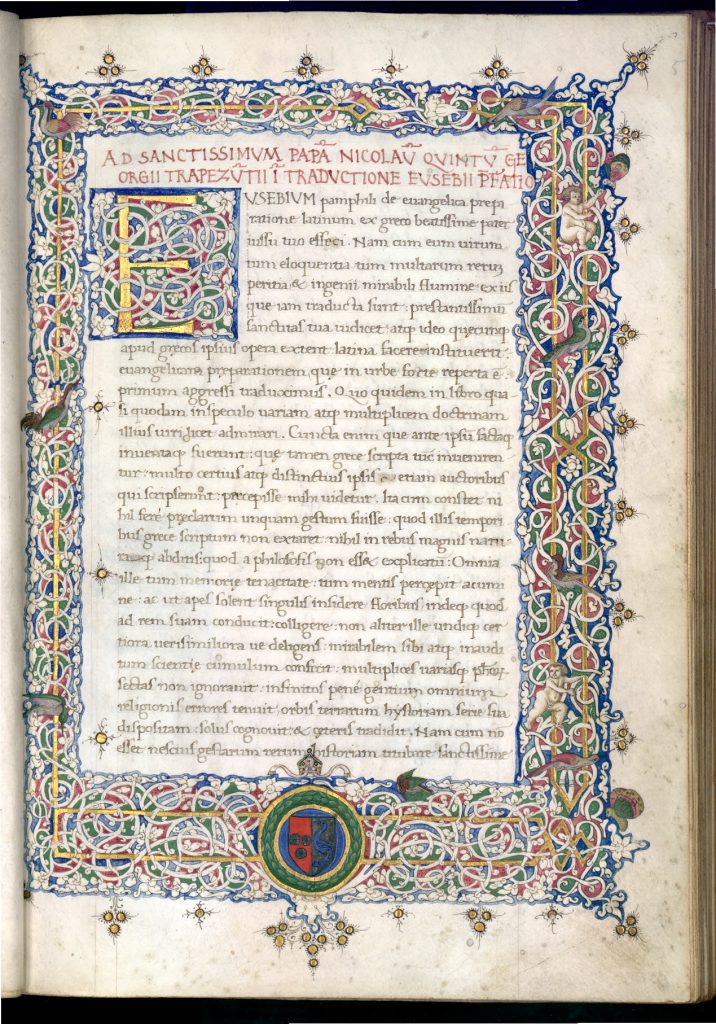 AD SANCTISSIMVM PAPĀ NICOLAṼ QVINTṼ GE
ORGII TRAPEZṼTII Ī TRADVCTIONE EVSEBII P̄FATIO
EUSEBIUM pamphili de euangelica prepa
ratione latinum ex greco beatissime pater
iussu tuo effeci. Nam cum eum uirum
tum eloquentia tum multarum rerum
peritia & ingenii mirabili flumine ex iis
que iam traducta sunt: prestantissimum
sanctitas tua iudicet atq ideo quecunq
apud grecos ipsius opera extent latina facere instituerit:
euangelicam preparationem que in urbe forte reperta e
primum aggressi traduximus. Quo quidem in libro qua
si quodam in speculo uariam atq multiplicem doctrinam
illius uiri licet admirari. Cuncta enim que ante ipsu facta
inuentaq fuerunt: que tamen grece scripta tuc inueniren
tur: multo certius atq distinctius ipsis etiam auctoribus
qui scripserunt: percepisse mihi uidetur. Ita cum constet ni
hil fere preclarum unquam gestum fuisse: quod illis tempori
bus grece scriptum non extaret: nihil in rebus magnis natu
raq abditis: quod a philosofis non esset explicatu: Omnia
ille tum memorie tenacitate: tum mentis percepit acumi
ne: ac ut apes solent singulis insidere floribus: indeq quod
ad rem suam conducit: colligere: non aliter ille undiq cer
tiora uerisimiliora ue deligens: mirabilem sibi atq inaudi
tum scientie cumulum confecit: multiplices uariasq
sectas non ignorauit: infinitos pené gentium omnium
religionis errores tenuit: orbis terrarum hystoriam serie sua
dispositam: solus cognouit & ceteris tradidit. Nam cum no
esset nescius gestarum rerum historiam sanctissime